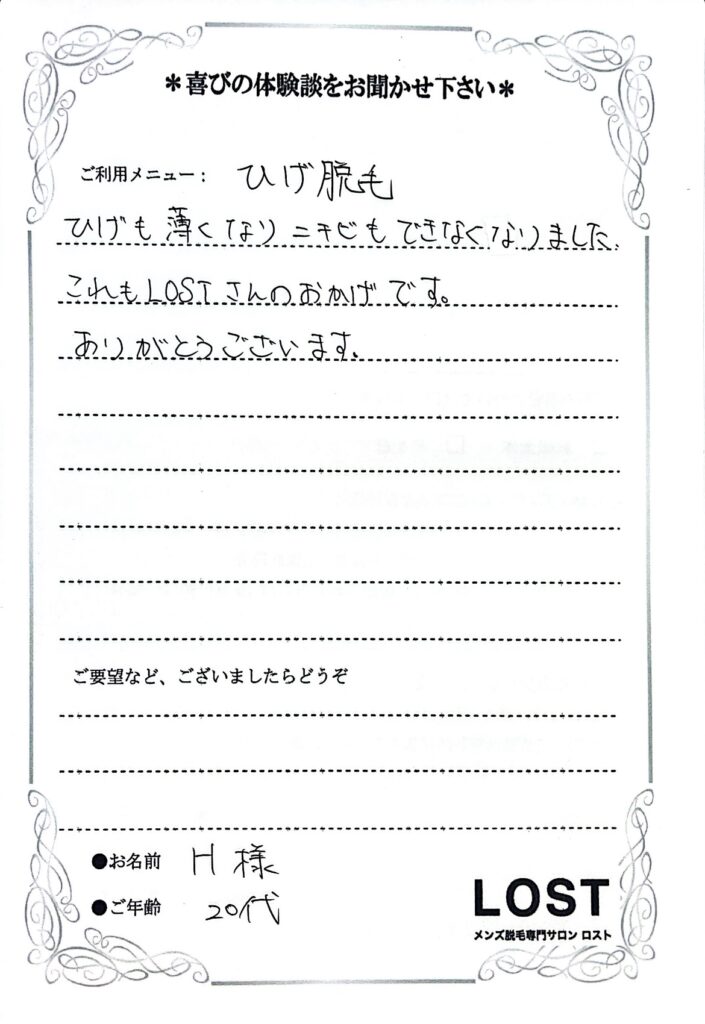 ＊喜びの体験談をお聞かせ下さい＊
ご利用メニュー： ひげ脱毛
ひげも薄くなりニキビもできなくなりました.
これもLOSTさんのおかげです。
ありがとうございます.
ご要望など、ございましたらどうぞ
●お名前 H様
●ご年齢 20代
LOST
メンズ脱毛専門サロン ロスト